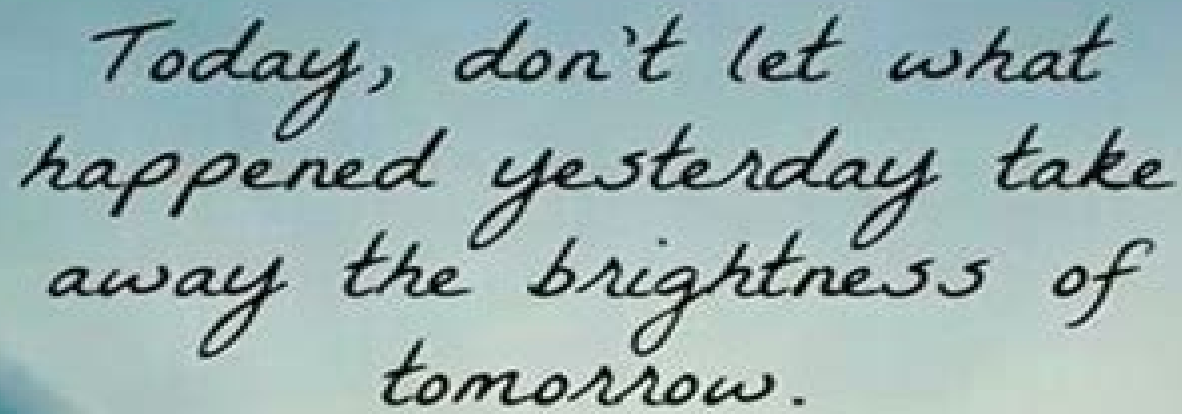 Today, don't let what
happened yesterday take
away the brightness of
tomorrow.